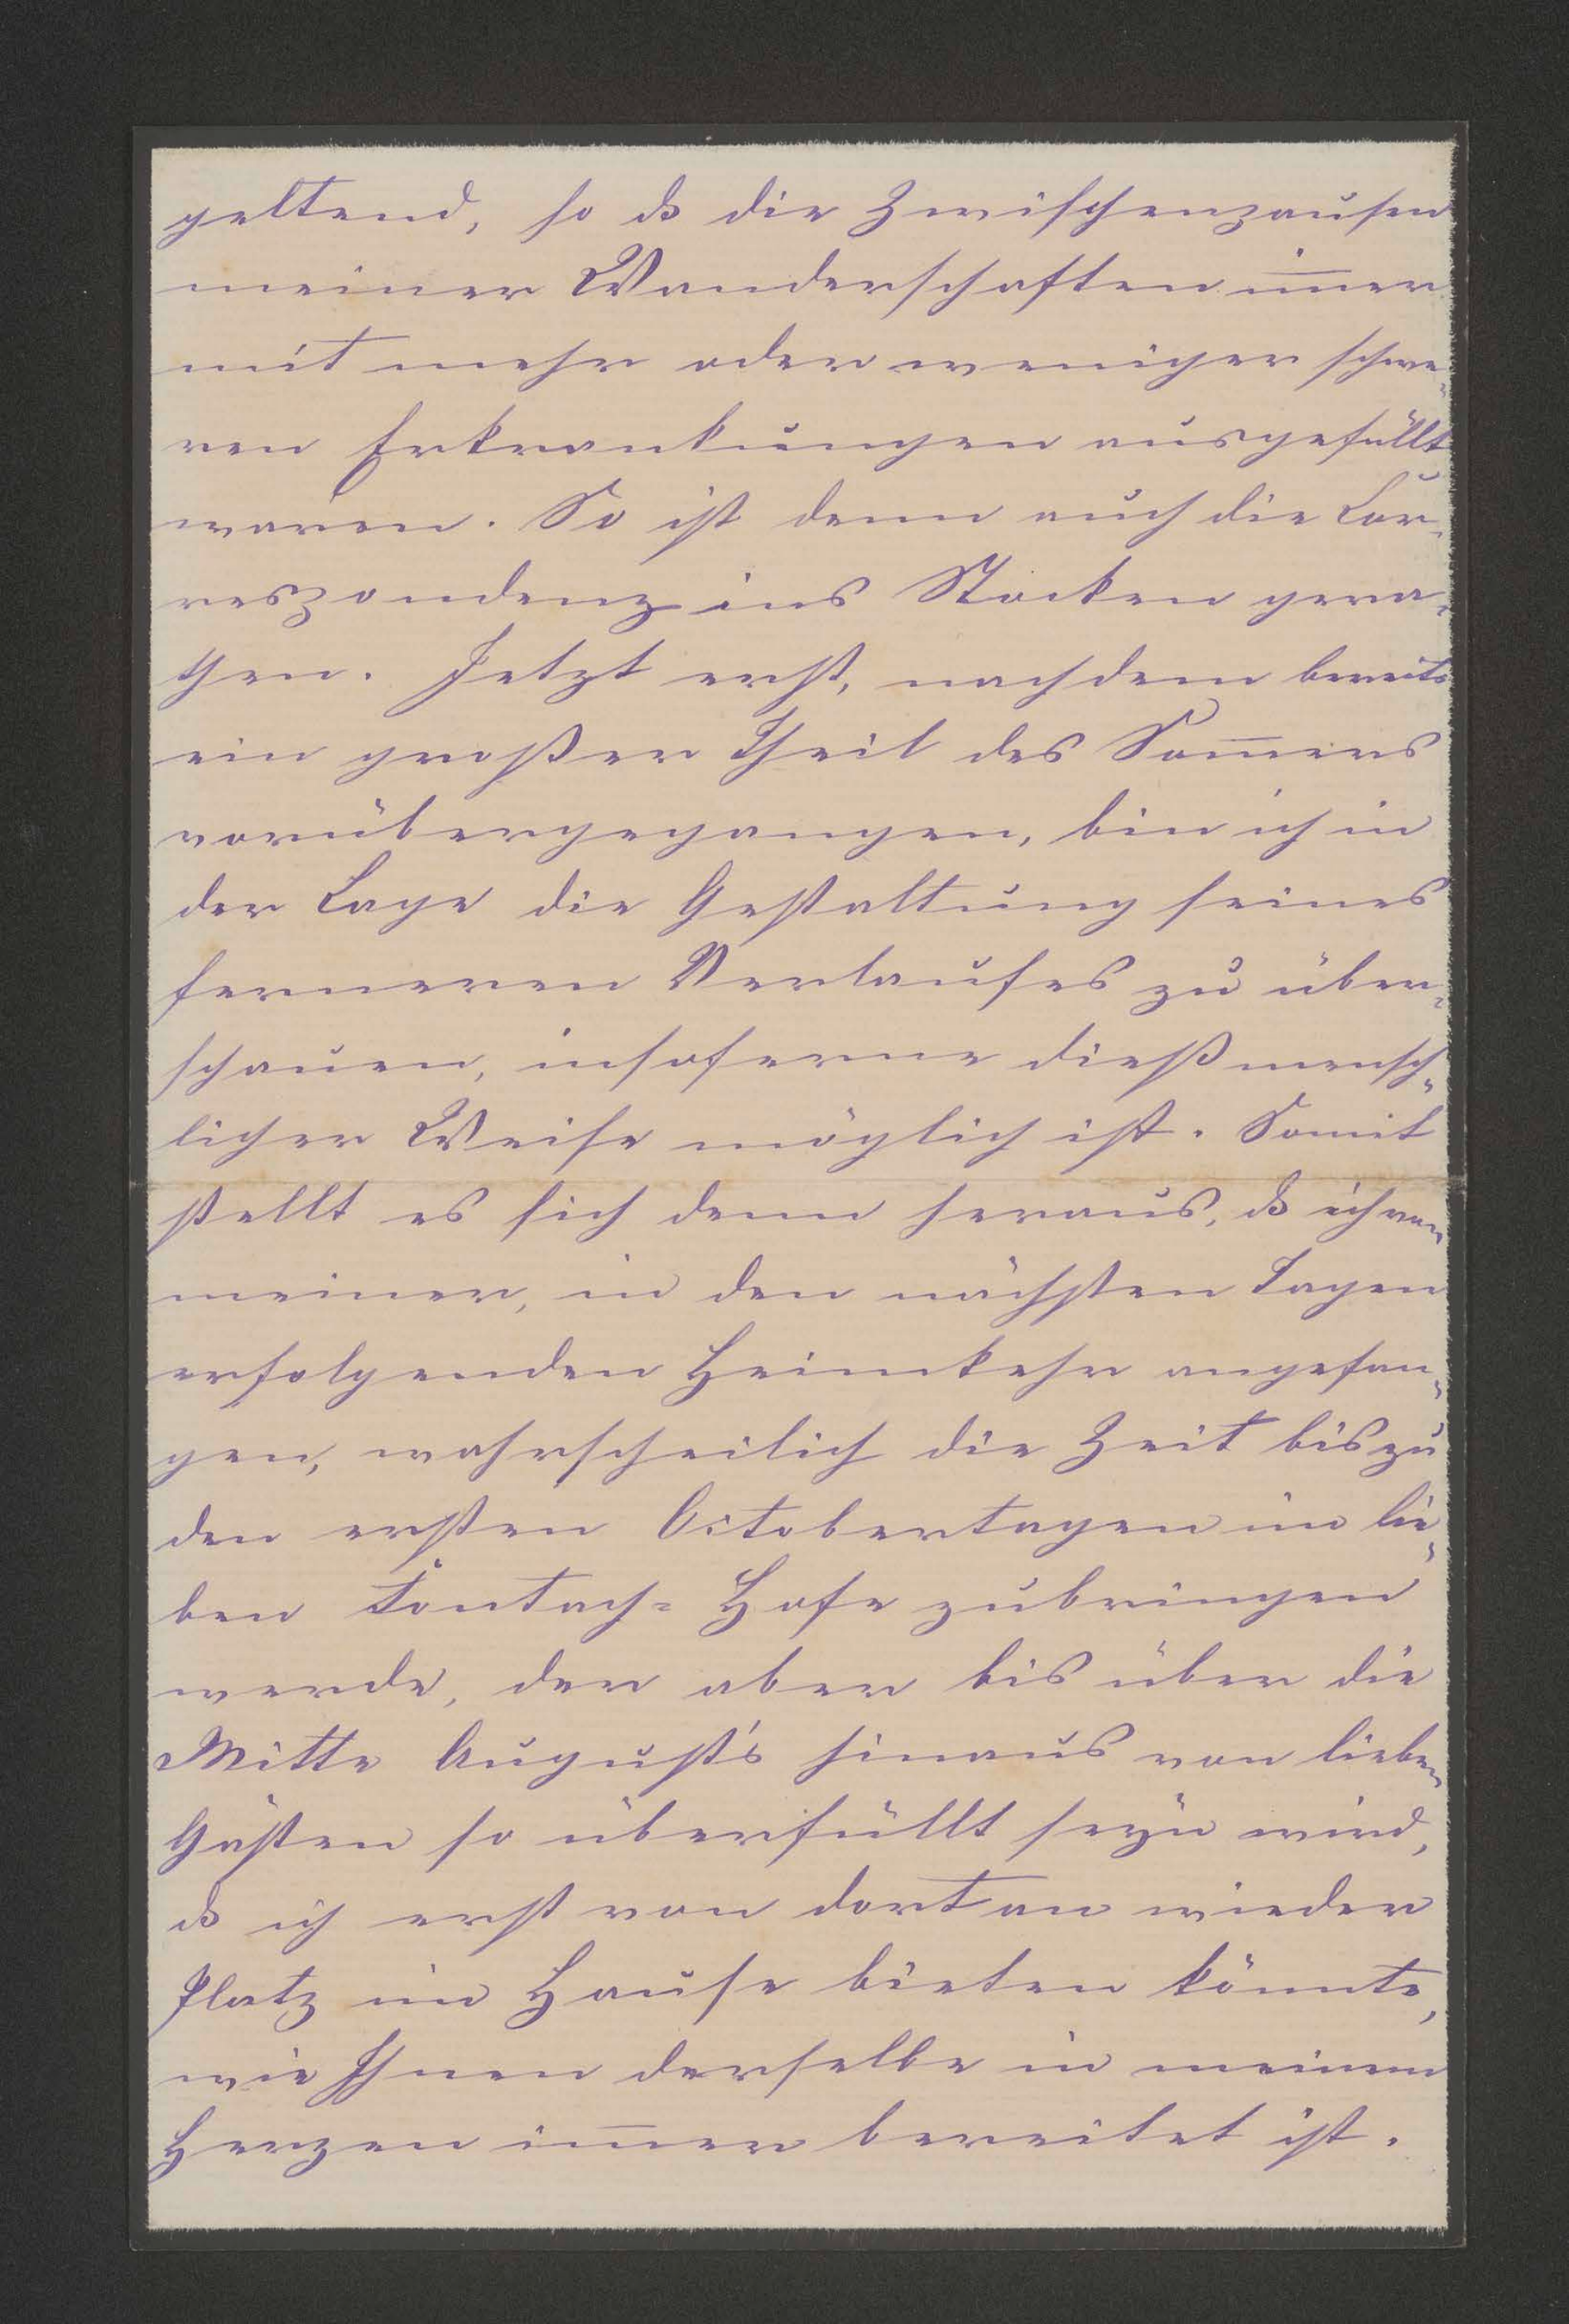 geltend, so dß die Zwischenpausen
meiner Wanderschaften im̅er
mit mehr oder weniger schwe-
ren Erkrankungen ausgefüllt
waren. So ist denn auch die Cor-
respondenz ins Stocken gera-
then. Jetzt erst, nachdem bereits
ein großer Theil des Som̅ers
vorübergegangen, bin ich in
der Lage die Gestaltung seines
ferneren Verlaufes zu über-
schauen, insoferne dieß mensch-
licher Weise möglich ist. Somit
stellt es sich denn heraus, dß ich von
meiner, in den nächsten Tagen
erfolgenden Heimkehr angefan-
gen, wahrscheilich die Zeit bis zu
den ersten Octobertagen im lie-
ben Hofe zubringen
werde, der aber bis über die
Mitte August's hinaus von lieben
Gästen so überfüllt seyn wird,
dß ich erst von dort an wieder
Platz im Hause bieten könnte,
wie Ihnen derselbe in meinem
Herzen im̅er bereitet ist.